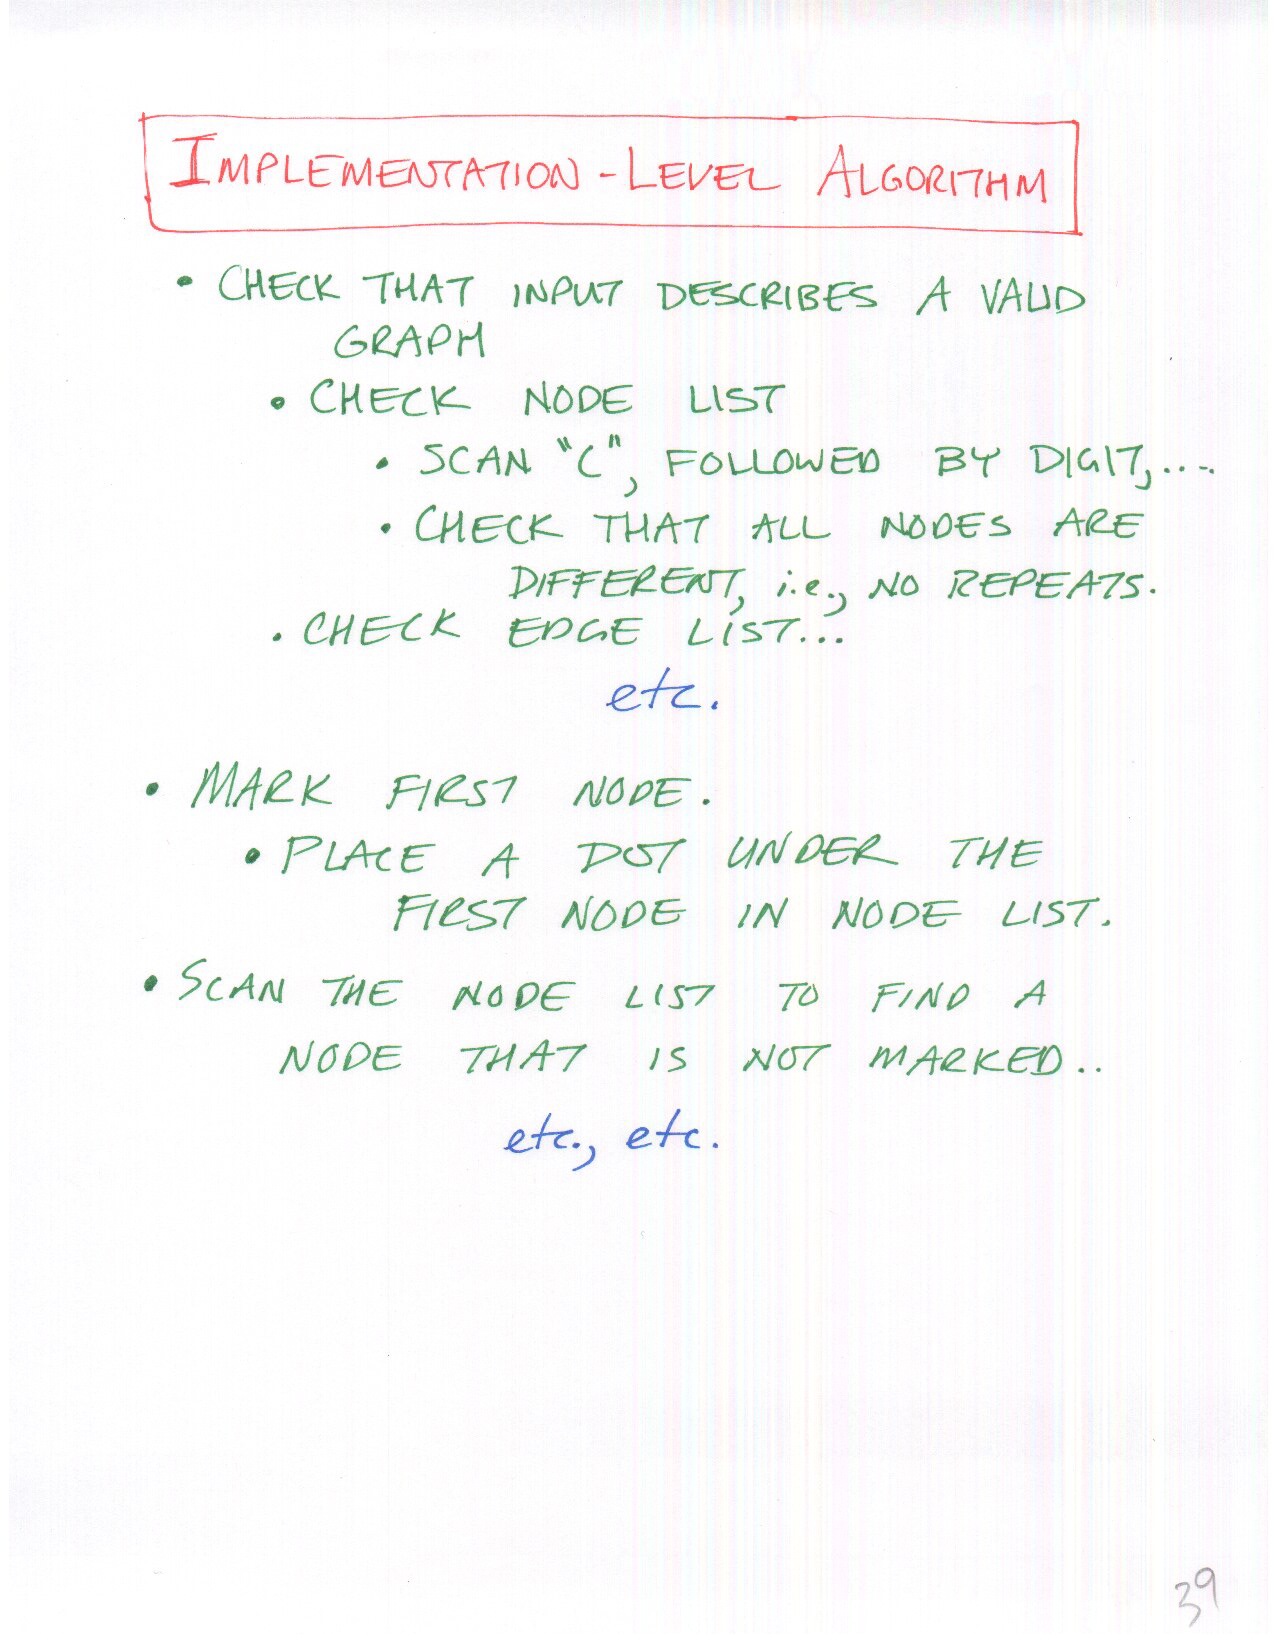 IMPLEMENTATION-LEVEL ALGORITHM
• CHECK THAT INPUT DESCRIBES A VALID
GRAPH
• CHECK NODE LIST
• SCAN "(", FOLLOWED BY DIGIT, ....
• CHECK THAT ALL NODES ARE
DIFFERENT, i.e., NO REPEATS.
• CHECK EDGE LIST...
etc.
• MARK FIRST NODE.
• PLACE A DOT UNDER THE
FIRST NODE IN NODE LIST.
• SCAN THE NODE LIST TO FIND A
NODE THAT IS NOT MARKED..
etc., etc.
39